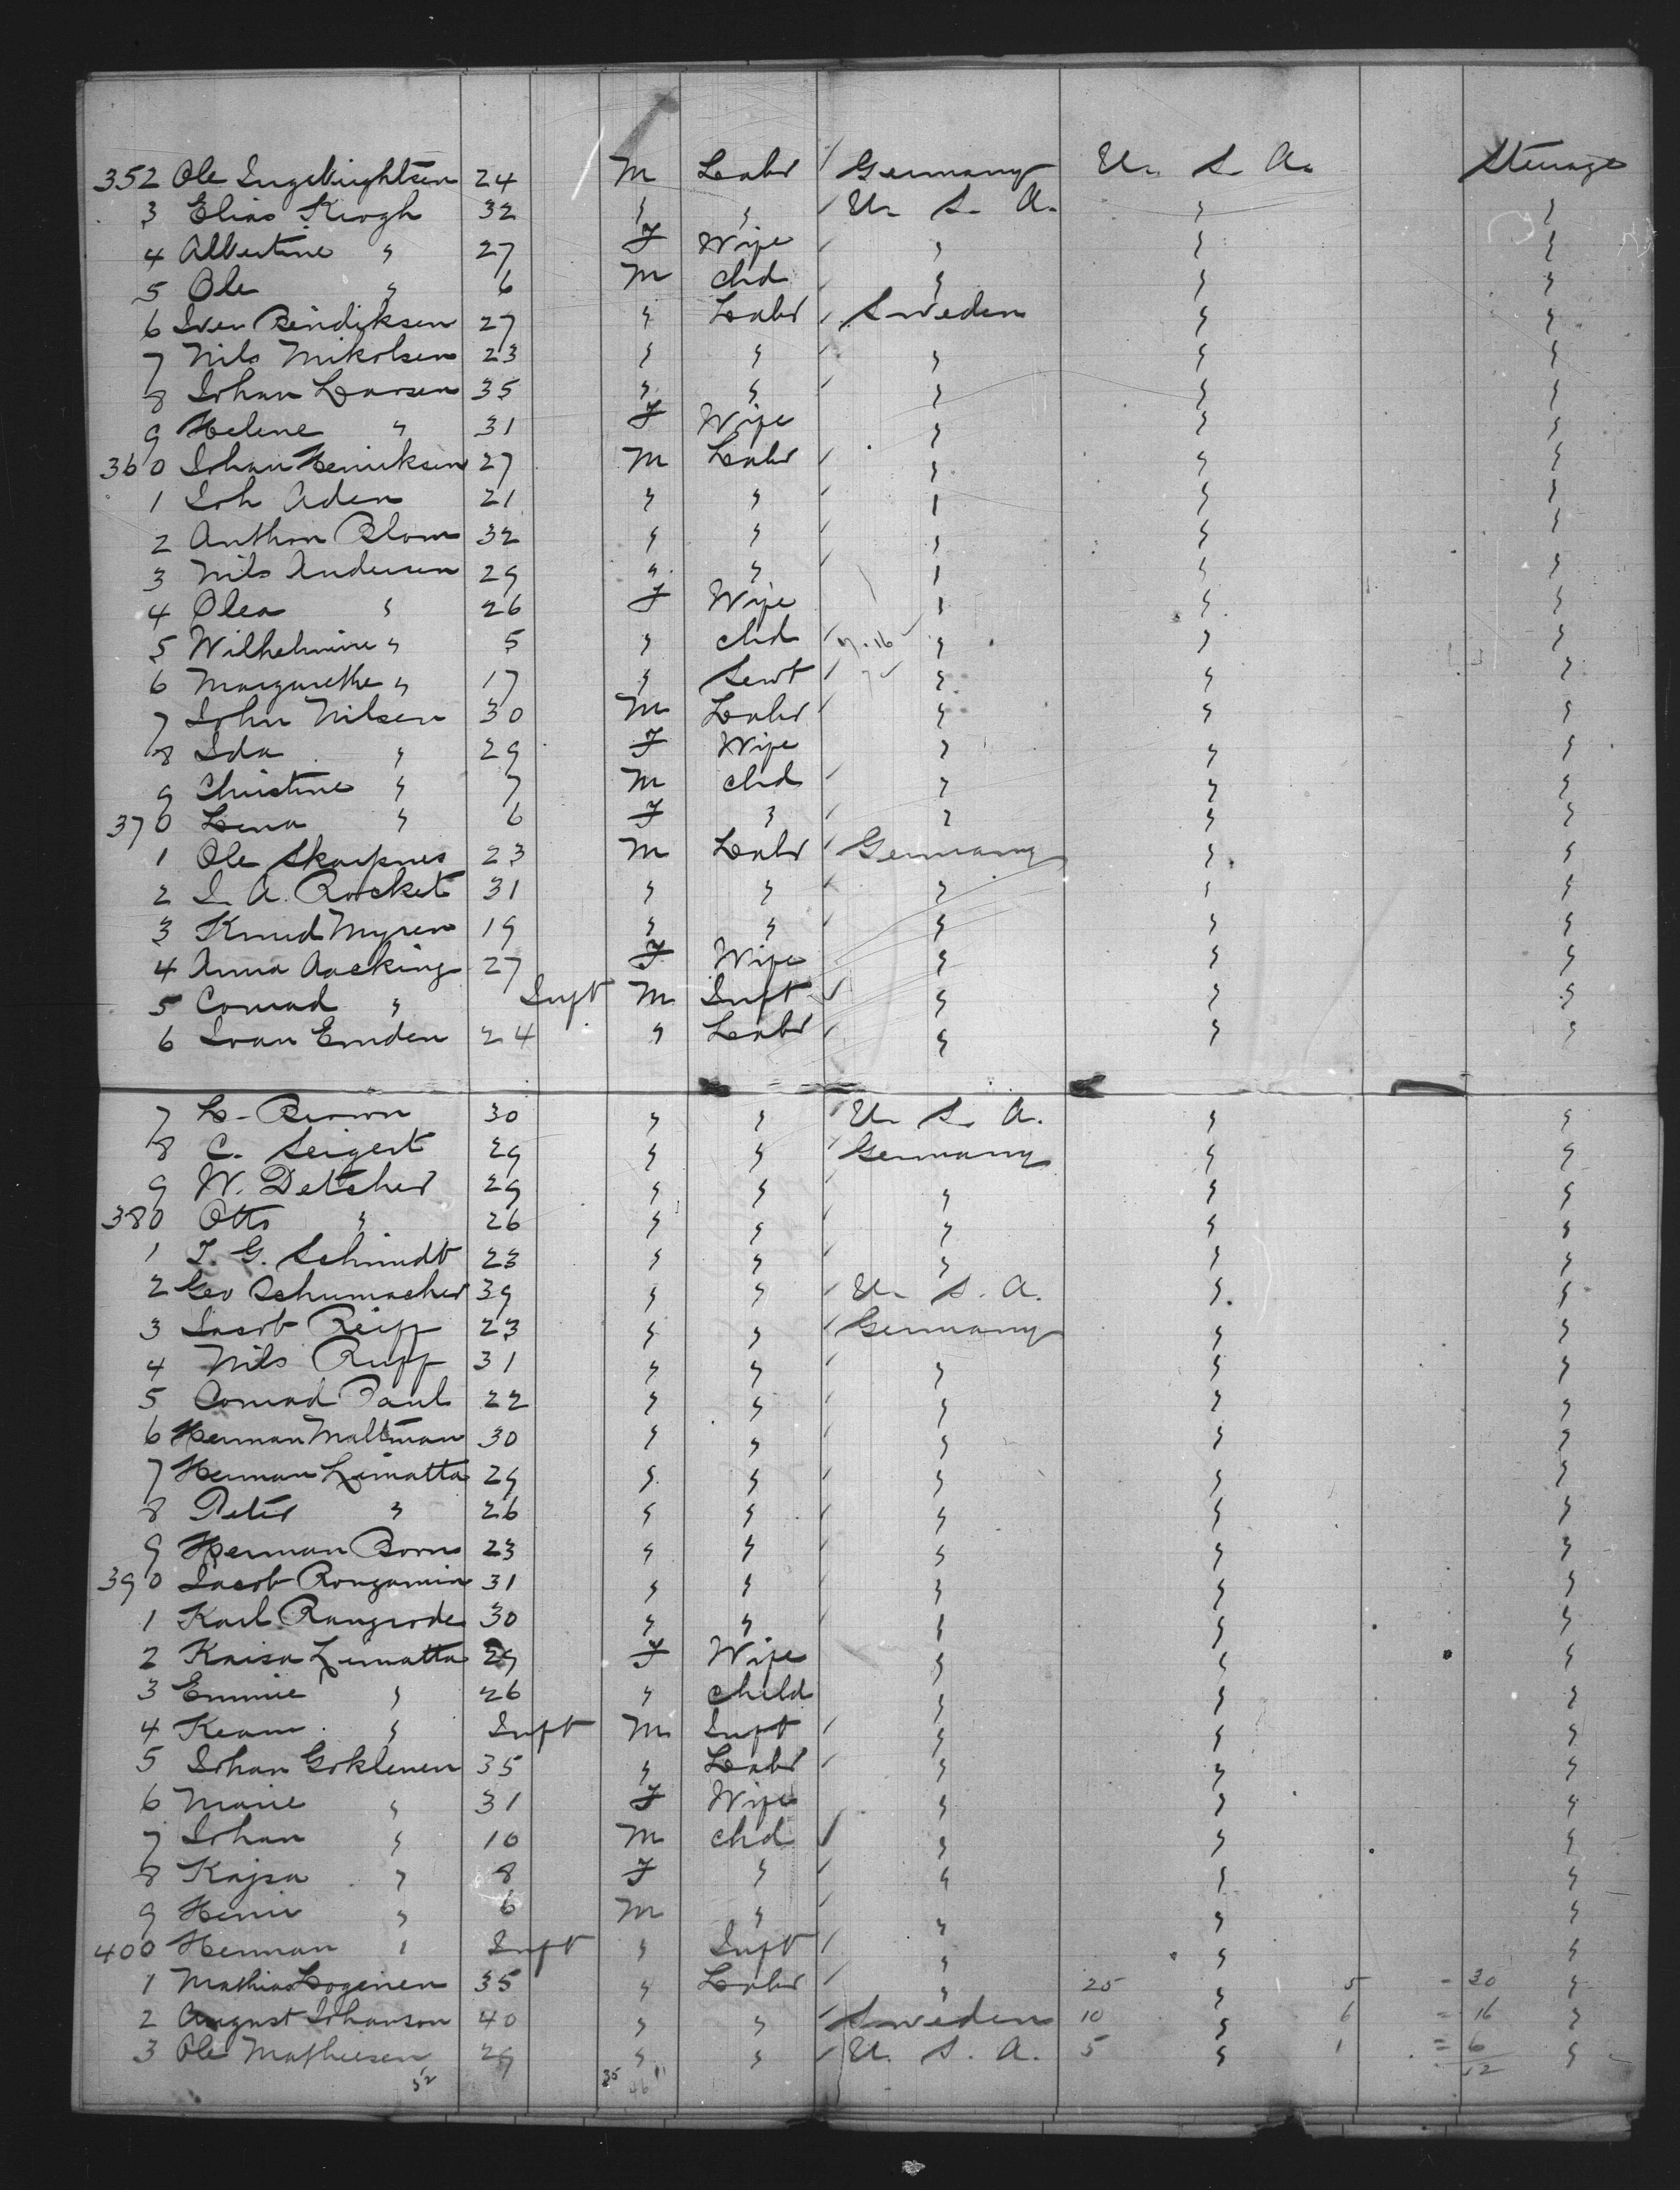 352 Ole Ingebrightsen 24 M Labr Germany U. S. A. Steerage
3 Elias Krogh 32 " " U. S. A. " "
4 Albertine " 27 F Wife " " "
5 Ole " 6 M chd " " "
6 Iver Bendiksen 27 " Labr Sweden " "
7 Nils Mikolsen 23 " " " " "
8 Johan Larsen 35 " " " " "
9 Helene " 31 F Wife " " "
360 Johan Henriksen 27 M Labr " " "
1 Joh Aden 21 " " " " "
2 Anthon Blom 32 " " " " "
3 Nils Andersen 29 " " " " "
4 Olea " 26 F Wife " " "
5 Wilhelmine " 5 " chd " " "
6 Margarethe " 17 " Servt " " "
7 John Nilsen 30 M Labr " " "
8 Ida " 29 F Wife " " "
9 Christine " 7 M chd " " "
370 Lena " 6 F " " " "
1 Ole Skarpnes 23 M Labr Germany " "
2 I. A. Rocket 31 " " " " "
3 Knud Myren 19 " " " " "
4 Anna Aasking 27 F Wife " " "
5 Conrad " Inft M Inft " " "
6 Ivan Emden 24 " Labr " " "
7 L. Brown 30 " " U. S. A. " "
8 C. Seigert 29 " " Germany " "
9 W. Detscher 29 " " " " "
380 Otto " 26 " " " " "
1 T. G. Schmidt 23 " " " " "
2 Geo Schumacher 39 " " U. S. A. " "
3 Jacob Reipp 23 " " Germany " "
4 Nils Rupp 31 " " " " "
5 Conrad Paul 22 " " " " "
6 Herman Maltman 30 " " " " "
7 Herman Limatta 29 " " " " "
8 Peter " 26 " " " " "
9 Herman Born 23 " " " " "
390 Jacob Rongamia 31 " " " " "
1 Karl Rangrode 30 " " " " "
2 Kaisa Limatta 29 F Wife " " "
3 Emmie " 26 " Child " " "
4 Keam " Inft M Inft " " "
5 Johan Goklenen 35 " Labr " " "
6 Marie " 31 F Wife " " "
7 Johan " 10 M chd " " "
8 Kajsa " 8 F " " " "
9 Henri " 6 M " " " "
400 Herman " Inft " Inft " " "
1 Mathias Logenen 35 " Labr " 25 " 5 = 30 "
2 August Johanson 40 " " Sweden 10 " 6 = 16 "
3 Ole Mathiesen 29 " " U. S. A. 5 " 1 = 6 "
52 35 11 46 52